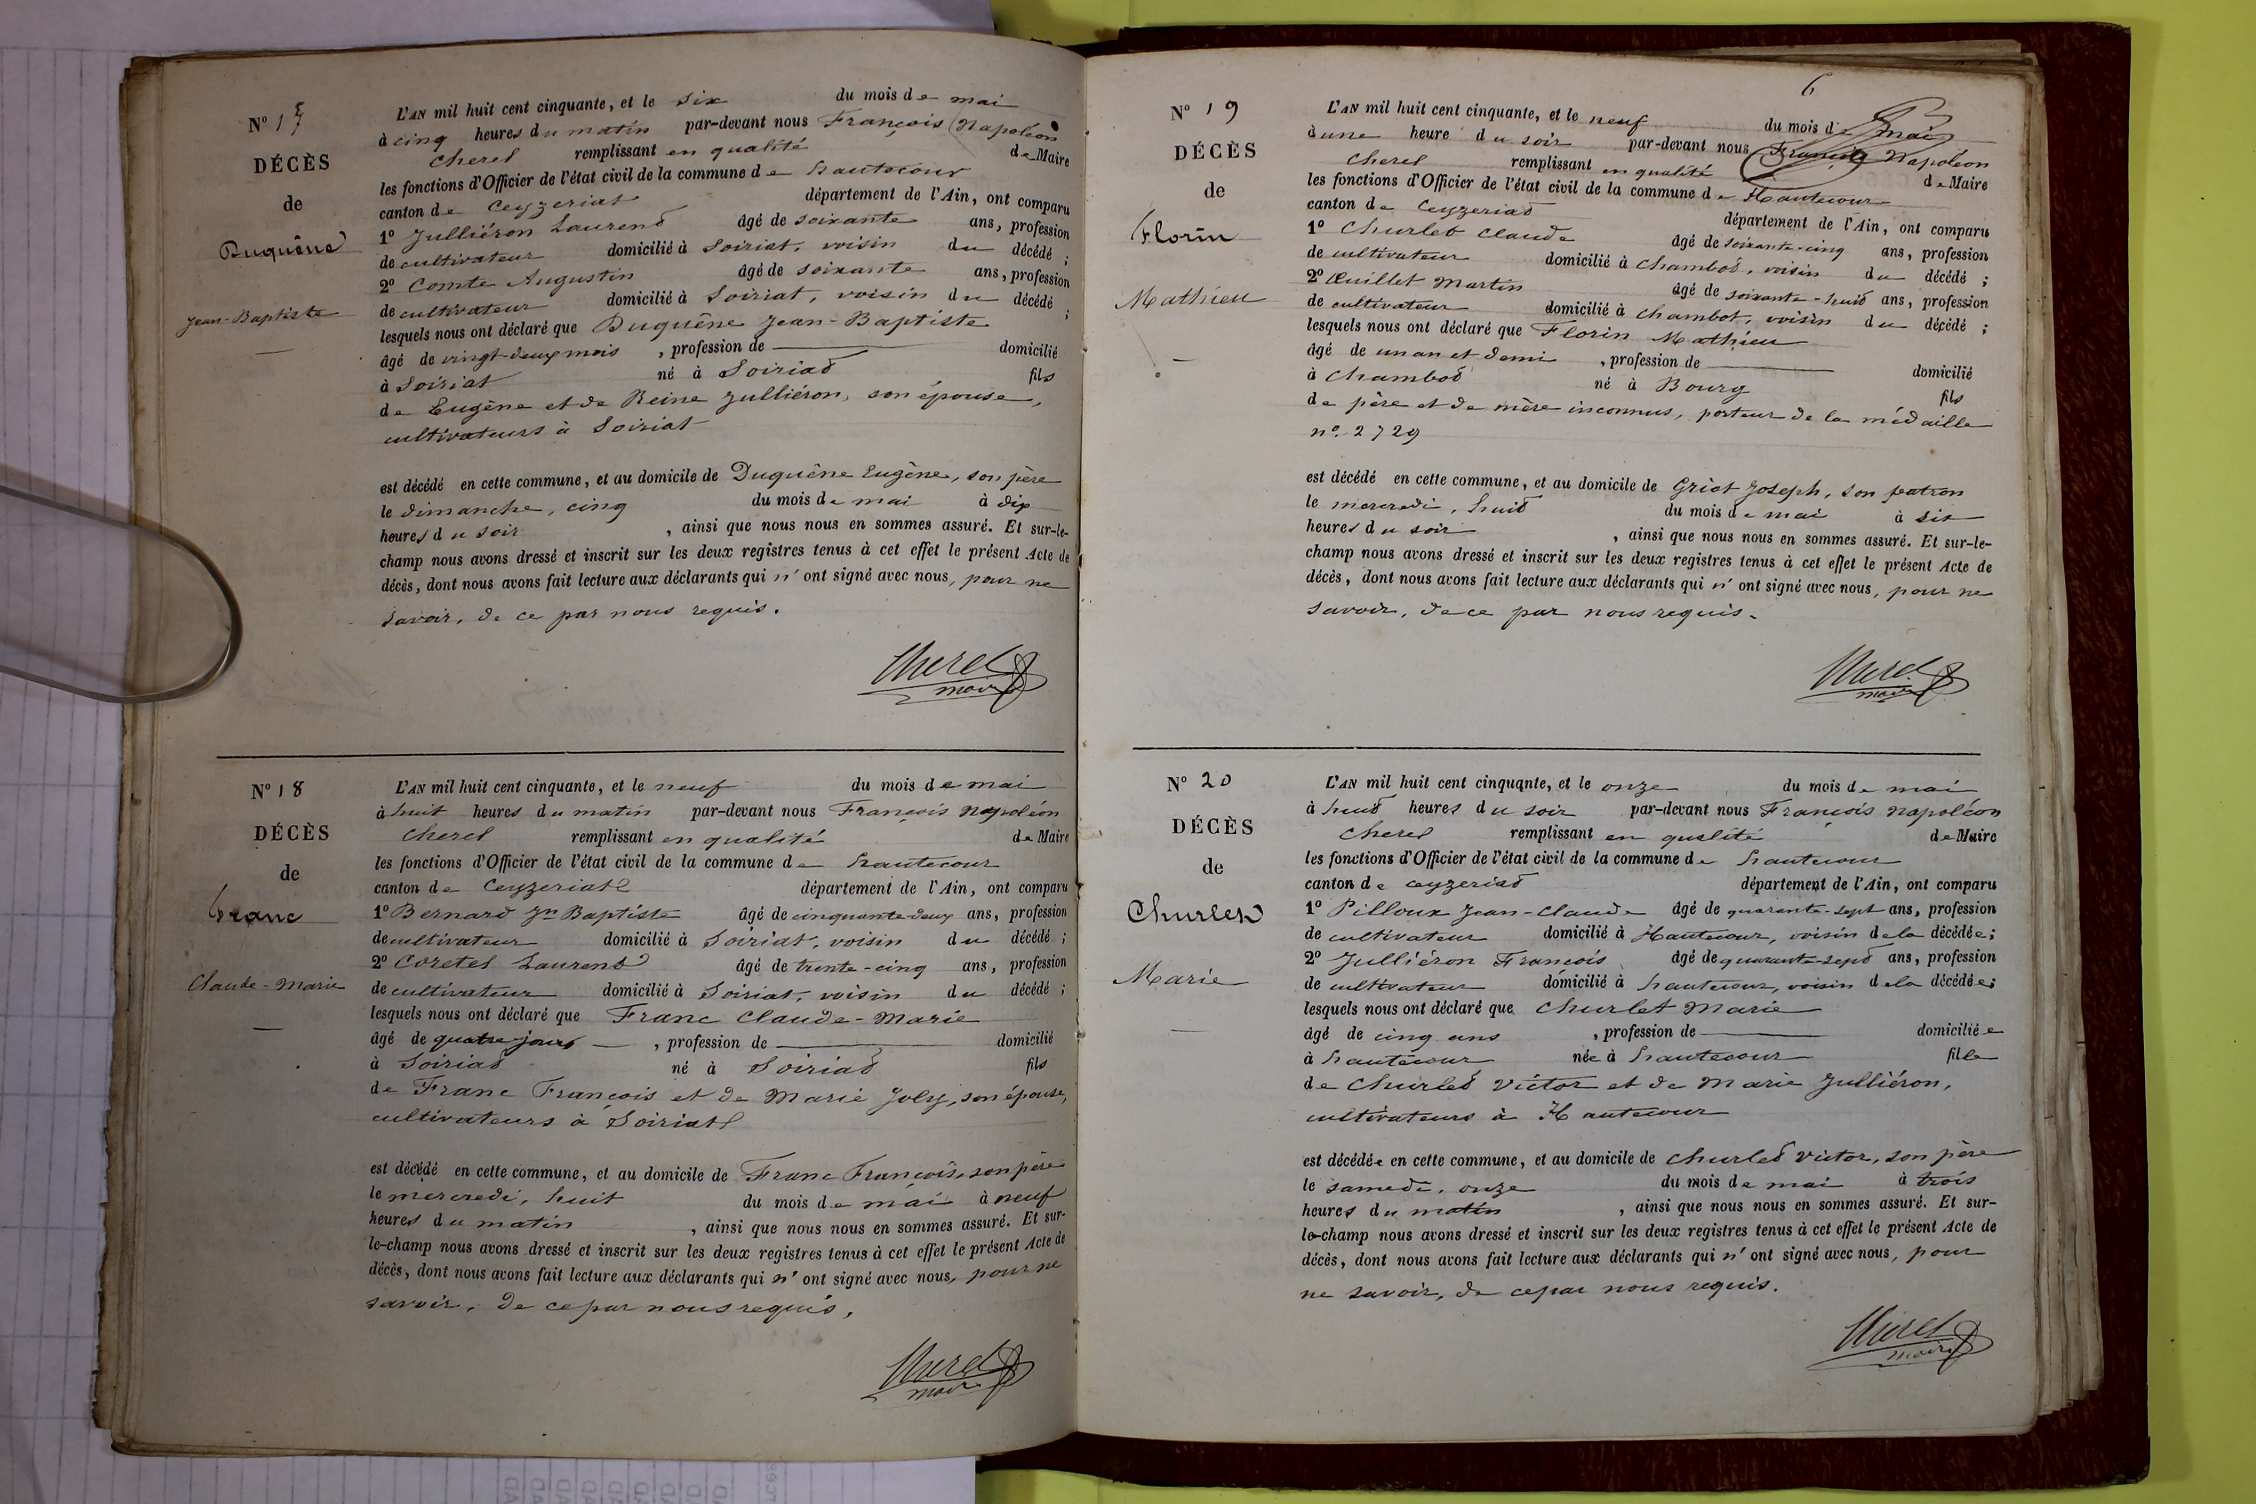 N° 17
DÉCÈS
de
Duquêne
Jean-Baptiste
L'AN mil huit cent cinquante, et le six du mois de mai
à cinq heures du matin par-devant nous François Napoléon
Cherel remplissant en qualité de Maire
les fonctions d'Officier de l'état civil de la commune de hautecour
canton de Ceyzeriat département de l'Ain, ont comparu
1° Julliéron Laurend âgé de soixante ans, profession
de cultivateur domicilié à Soiriat, voisin du décédé ;
2° Comte Augustin âgé de soixante ans, profession
de cultivateur domicilié à Soiriat, voisin du décédé ;
lesquels nous ont déclaré que Duquêne Jean-Baptiste
âgé de vingt-deux mois , profession de domicilié
à Soiriat né à Soiriad fils
de Eugène et de Reine Julliéron, son épouse,
cultivateurs à Soiriat
est décédé en cette commune, et au domicile de Duquêne Eugêne, son père
le dimanche, cinq du mois de mai à dix
heures du soir , ainsi que nous nous en sommes assuré. Et sur-le-
champ nous avons dressé et inscrit sur les deux registres tenus à cet effet le présent Acte de
décès, dont nous avons fait lecture aux déclarants qui n' ont signé avec nous, pour ne
savoir, de ce par nous requis.
Cherel
maire
N° 18
DÉCÈS
de
Franc
Claude-Marie
L'AN mil huit cent cinquante, et le neuf du mois de mai
à huit heures du matin par-devant nous François Napoléon
Cherel remplissant en qualité de Maire
les fonctions d'Officier de l'état civil de la commune de hautecour
canton de Ceyzeriat département de l'Ain, ont comparu
1° Bernard Jn Baptiste âgé de cinquante-deux ans, profession
de cultivateur domicilié à Soiriat, voisin du décédé ;
2° Coretel Laurend âgé de trente-cinq ans, profession
de cultivateur domicilié à Soiriat, voisin du décédé ;
lesquels nous ont déclaré que Franc Claude-Marie
âgé de quatre jours , profession de domicilié
à Soiriad né à Soiriad fils
de Franc François et de Marie Joly, son épouse,
cultivateurs à Soiriat
est décédé en cette commune, et au domicile de Franc François, son père
le mercredi, huit du mois de mai à neuf
heures du matin , ainsi que nous nous en sommes assuré. Et sur-
le-champ nous avons dressé et inscrit sur les deux registres tenus à cet effet le présent Acte de
décès, dont nous avons fait lecture aux déclarants qui n' ont signé avec nous, pour ne
savoir, de ce par nous requis.
Cherel
maire
6
N° 19
DÉCÈS
de
Florin
Mathieu
L'AN mil huit cent cinquante, et le neuf du mois de mai
à une heure du soir par-devant nous François Napoléon
Cherel remplissant en qualité de Maire
les fonctions d'Officier de l'état civil de la commune de Hautecour
canton de Ceyzeriad département de l'Ain, ont comparu
1° Churlet Claude âgé de soixante-cinq ans, profession
de cultivateur domicilié à Chambod, voisin du décédé ;
2° Œuillet Martin âgé de soixante-huid ans, profession
de cultivateur domicilié à Chambot, voisin du décédé ;
lesquels nous ont déclaré que Florin Mathieu
âgé de un an et demi , profession de domicilié
à Chambod né à Bourg fils
de père et de mère inconnus, porteur de la médaille
n°. 2729
est décédé en cette commune, et au domicile de Griot Joseph, son patron
le mercredi, huid du mois de mai à six
heures du soir , ainsi que nous nous en sommes assuré. Et sur-le-
champ nous avons dressé et inscrit sur les deux registres tenus à cet effet le présent Acte de
décès, dont nous avons fait lecture aux déclarants qui n' ont signé avec nous, pour ne
savoir, de ce par nous requis.
Cherel
maire
N° 20
DÉCÈS
de
Churlet
Marie
L'AN mil huit cent cinquante, et le onze du mois de mai
à huid heures du soir par-devant nous François Napoléon
Cherel remplissant en qualité de Maire
les fonctions d'Officier de l'état civil de la commune de hautecour
canton de Ceyzeriad département de l'Ain, ont comparu
1° Pilloux Jean-Claude âgé de quarante-sept ans, profession
de cultivateur domicilié à Hautecour, voisin de la décédée ;
2° Julliéron François âgé de quarante-sept ans, profession
de cultivateur domicilié à hautecour, voisin de la décédée ;
lesquels nous ont déclaré que Churlet Marie
âgé de cinq ans , profession de domiciliée
à hautecour née à hautecour fille
de Churled Victor et de Marie Julliéron,
cultivateurs à Hautecour
est décédée en cette commune, et au domicile de Churled Victor, son père
le samedi, onze du mois de mai à trois
heures du matin , ainsi que nous nous en sommes assuré. Et sur-
le-champ nous avons dressé et inscrit sur les deux registres tenus à cet effet le présent Acte de
décès, dont nous avons fait lecture aux déclarants qui n' ont signé avec nous, pour
ne savoir, de ce par nous requis.
Cherel
maire